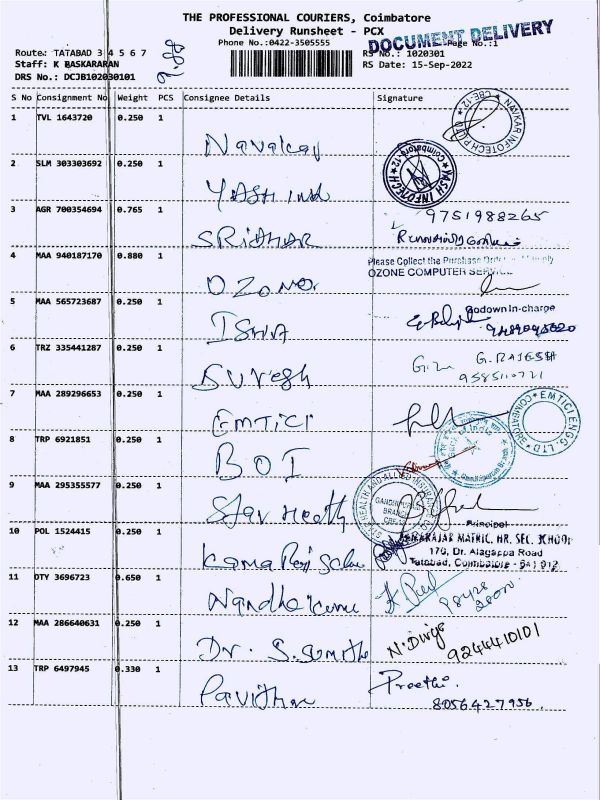 THE PROFESSIONAL COURIERS, Coimbatore
Delivery Runsheet - PCX
Phone No.:0422-3505555
DOCUMENT DELIVERY
Page No.:1
Route: TATABAD 3 4 5 6 7
RS No.: 1020301
Staff: K BASKARARAN
RS Date: 15-Sep-2022
DRS No.: DCJB102030101
S No Consignment No Weight PCS Consignee Details Signature
1 TVL 1643720 0.250 1
NAVKAR INFOTECH
CBE-12
2 SLM 303303692 0.250 1
YASH INFOTECH
Coimbatore-12
3 AGR 700354694 0.765 1 SRIDHAR
9751988265
4 MAA 940187170 0.880 1 OZONE
Please Collect the Purchase
OZONE COMPUTER SERVICE
5 MAA 565723687 0.250 1 ISHA
Godown In-charge
6 TRZ 335441287 0.250 1 Suresh
G. RAJESH
9585110721
7 MAA 289296653 0.250 1 EMTICI
EMTICI ENG. LTD
COIMBATORE
8 TRP 6921851 0.250 1 BOI
9 MAA 295355577 0.250 1 Star Health
STAR HEALTH AND ALLIED INSURANCE CO
GANDHIPURAM
BRANCH
10 POL 1524415 0.250 1
Principal
KAMARAJAR MATRIC. HR. SEC. SCHOOL
170, Dr. Alagappa Road
Tatabad, Coimbatore - 641 012
11 DTY 3696723 0.650 1
12 MAA 286640631 0.250 1 Dr. S. Sumitha
9244410101
13 TRP 6497945 0.330 1 Pavithra
Preethi.
8056427956